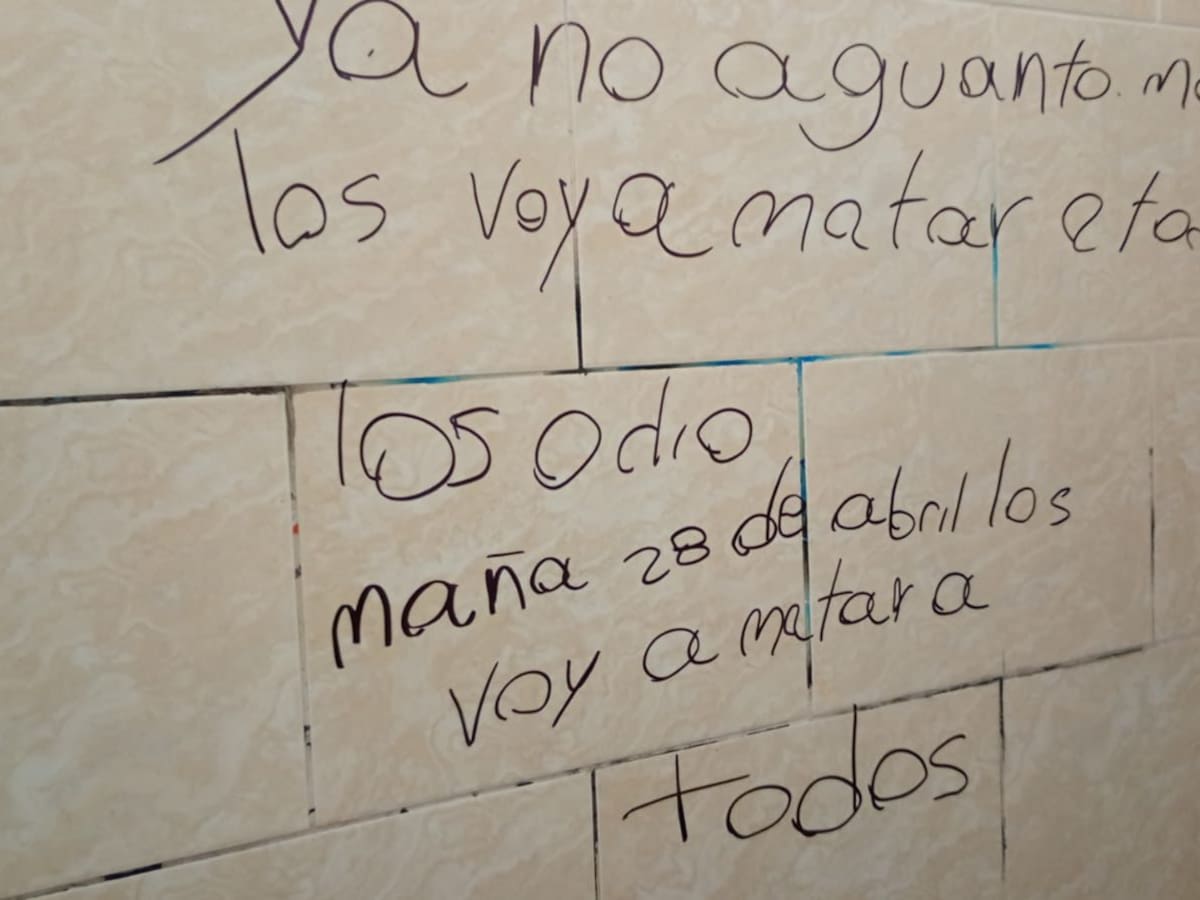 ya no aguanto
los voy a matar
los odio
maña 28 de abril los
voy a matar a
todos